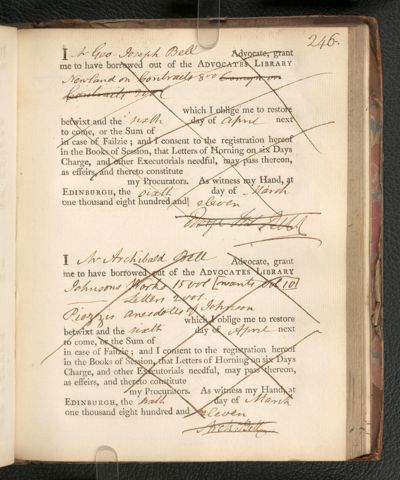 246.
I Mr Geo. Joseph Bell Advocate, grant
me to have borrowed out of the ADVOCATES LIBRARY
Newland on Contracts 8vo Comyn on
Contracts 2 vol
which I oblige me to restore
betwixt and the sixth day of April next
to come, or the Sum of
in case of Failzie; and I consent to the registration hereof
in the Books of Session, that Letters of Horning on six Days
Charge, and other Executorials needful, may pass thereon,
as effeirs, and thereto constitute
my Procurators. As witness my Hand, at
EDINBURGH, the sixth day of March
one thousand eight hundred and eleven
I Mr Archibald Bell Advocate, grant
me to have borrowed out of the ADVOCATES LIBRARY
Johnsons Works 15 vol [wants vol 10]
Letters 2 vol.
Piozzis anecdotes of Johnson
which I oblige me to restore
betwixt and the sixth day of April next
to come, or the Sum of
in case of Failzie; and I consent to the registration hereof
in the Books of Session, that Letters of Horning on six Days
Charge, and other Executorials needful, may pass thereon,
as effeirs, and thereto constitute
my Procurators. As witness my Hand, at
EDINBURGH, the sixth day of March
one thousand eight hundred and eleven
Arch. Bell